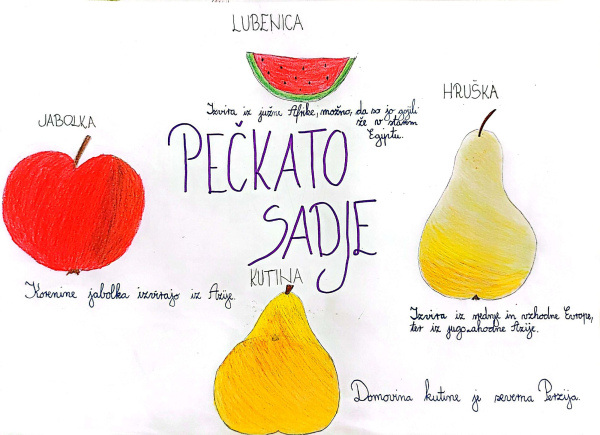 LUBENICA
Izvira iz južne Afrike, možno, da so jo gojili
že v starem
Egiptu.
HRUŠKA
JABOLKA
PEČKATO
SADJE
KUTINA
Korenine jabolka izvirajo iz Azije.
Izvira iz srednje in vzhodne Evrope,
ter iz jugozahodne Azije.
Domovina kutine je severna Perzija.